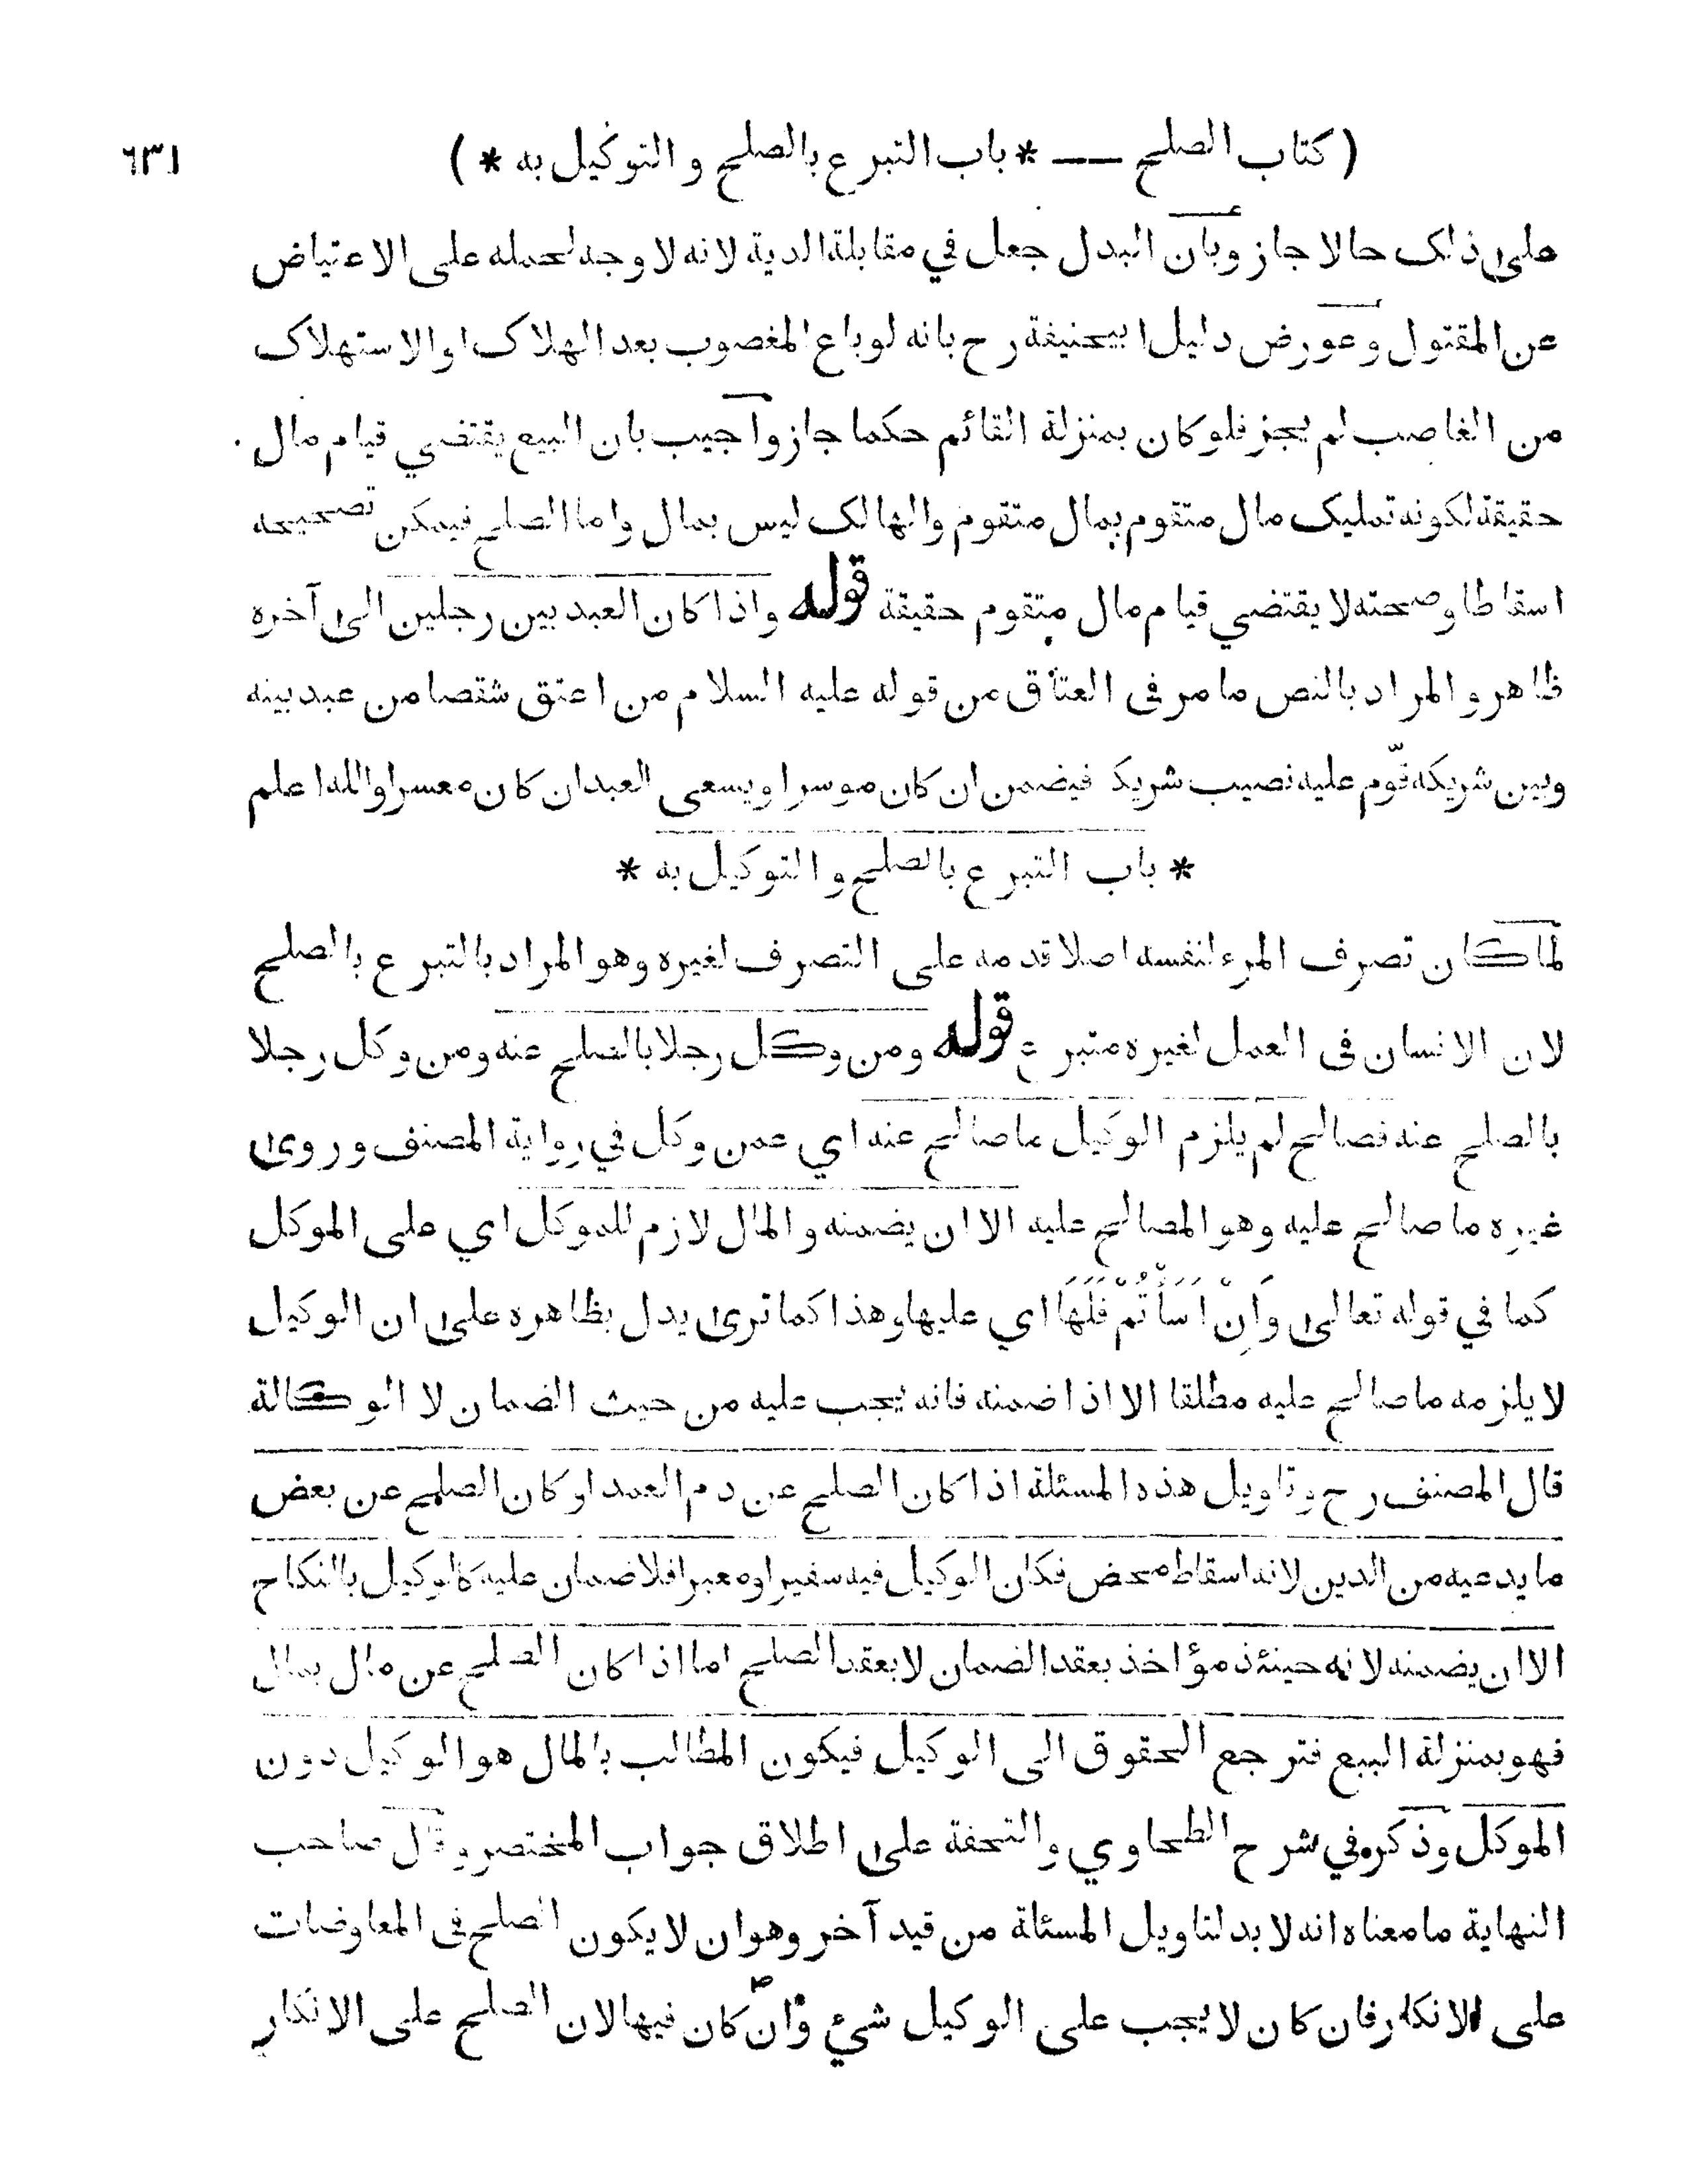 ( كتاب الصلح — * باب التبرع بالصلح و التوكيل به * ) ٦٣١
على ذلك حالا جاز وبان البدل جعل في مقابلة الدية لانه لا وجه لحمله على الاعتياض
عن المقتول وعورض دليل ابيحنيفة رح بانه لو باع المغصوب بعد الهلاك او الاستهلاك
من الغاصب لم يجز فلو كان بمنزلة القائم حكما جاز واجيب بان البيع يقتضي قيام مال
حقيقة لكونه تمليك مال متقوم بمال متقوم والهالك ليس بمال واما الصلح فيمكن تصحيحه
اسقاطا وصحته لا يقتضي قيام مال متقوم حقيقة قوله واذا كان العبد بين رجلين الى آخره
ظاهر و المراد بالنص ما مر فى العتاق من قوله عليه السلام من اعتق شقصا من عبد بينه
وبين شريكه قوّم عليه نصيب شريك فيضمن ان كان موسرا ويسعى العبد ان كان معسرا والله اعلم
* باب التبرع بالصلح و التوكيل به *
لما كان تصرف المرء لنفسه اصلا قدمه على التصرف لغيره وهو المراد بالتبرع بالصلح
لان الانسان فى العمل لغيره متبرع قوله ومن وكل رجلا بالصلح عنه ومن وكل رجلا
بالصلح عنه فصالح لم يلزم الوكيل ما صالح عنه اي عمن وكل في رواية المصنف وروى
غيره ما صالح عليه وهو المصالح عليه الا ان يضمنه والمال لازم للموكل اي على الموكل
كما في قوله تعالى وَاِنْ اَسَأْتُمْ فَلَهَا اي عليها وهذا كما ترى يدل بظاهره على ان الوكيل
لا يلزمه ما صالح عليه مطلقا الا اذا ضمنه فانه يجب عليه من حيث الضمان لا الوكالة
قال المصنف رح وتاويل هذه المسئلة اذا كان الصلح عن دم العمد او كان الصلح عن بعض
ما يدعيه من الدين لانه اسقاط محض فكان الوكيل فيه سفيرا ومعبرا فلا ضمان عليه كالوكيل بالنكاح
الا ان يضمنه لانه حينئذ مؤاخذ بعقد الضمان لا بعقد الصلح اما اذا كان الصلح عن مال بمال
فهو بمنزلة البيع فترجع الحقوق الى الوكيل فيكون المطالب بالمال هو الوكيل دون
الموكل وذكره في شرح الطحاوي والتحفة على اطلاق جواب المختصر وقال صاحب
النهاية ما معناه انه لا بد لتاويل المسئلة من قيد آخر وهو ان لا يكون الصلح فى المعاوضات
على الانكار فان كان لا يجب على الوكيل شئ وان كان فيها لان الصلح على الانكار